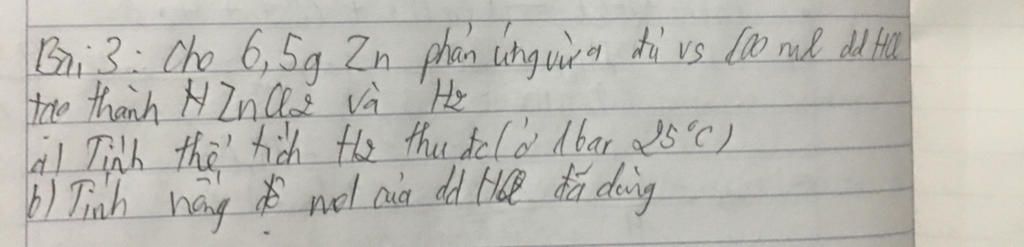 Bài 3: Cho 6,5g Zn phản ứng vừa đủ vs 100 ml dd HCl
tạo thành ZnCl2 và H2
a) Tính thể tích H2 thu đc (ở 1bar 25°C)
b) Tính nồng độ mol của dd HCl đã dùng